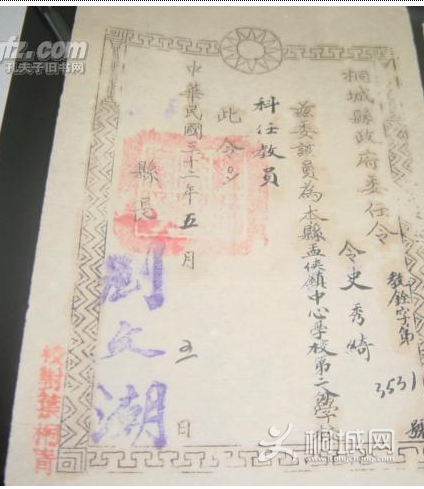 桐城縣政府委任令
教銓字第3531號
令史秀綺
茲委該員為本縣孟俠鎮中心學校第二
科任教員
此令。
中華民國三十二年五月 日
縣長
劉文湖
校對葉桐青
孔夫子旧书网
桐城网
itongcheng.com